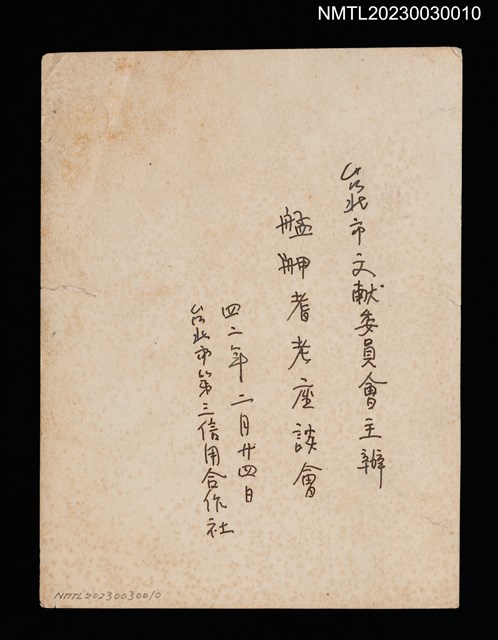 NMTL20230030010
台北市文献委員會主辦
艋舺耆老座談會
四二年二月廿四日
台北市第三信用合作社
NMTL20230030010